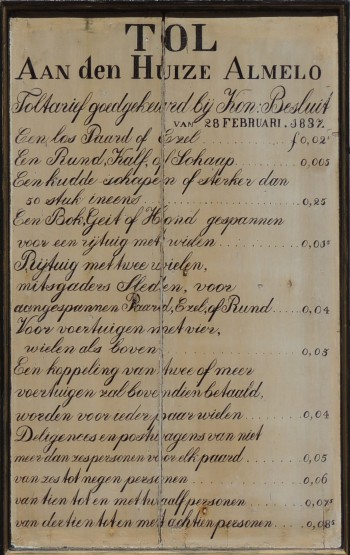 TOL
AAN den HUIZE ALMELO
Toltarief goedgekeurd bij Kon: Besluit
VAN 28 FEBRUARI. 1837.
Een los Paard of Ezel ƒ 0,02⁵
Een Rund, Kalf, of Schaap 0,005
Een kudde schapen of sterker dan
50 stuk ineens 0,25
Een Bok, Geit of Hond gespannen
voor een rijtuig met wielen 0,03⁵
Rijtuig met twee wielen,
mitsgaders Sleden, voor
aangespannen Paard, Ezel, of Rund 0,04
Voor voertuigen met vier,
wielen als boven 0,05
Een koppeling van twee of meer
voertuigen zal bovendien betaald,
worden voor ieder paar wielen 0,04
Deligences en postwagens van niet
meer dan zes personen voor elk paard 0,05
van zes tot negen personen 0,06
van tien tot en met twaalf personen 0,07⁵
van dertien tot en met achttien personen 0,08⁵